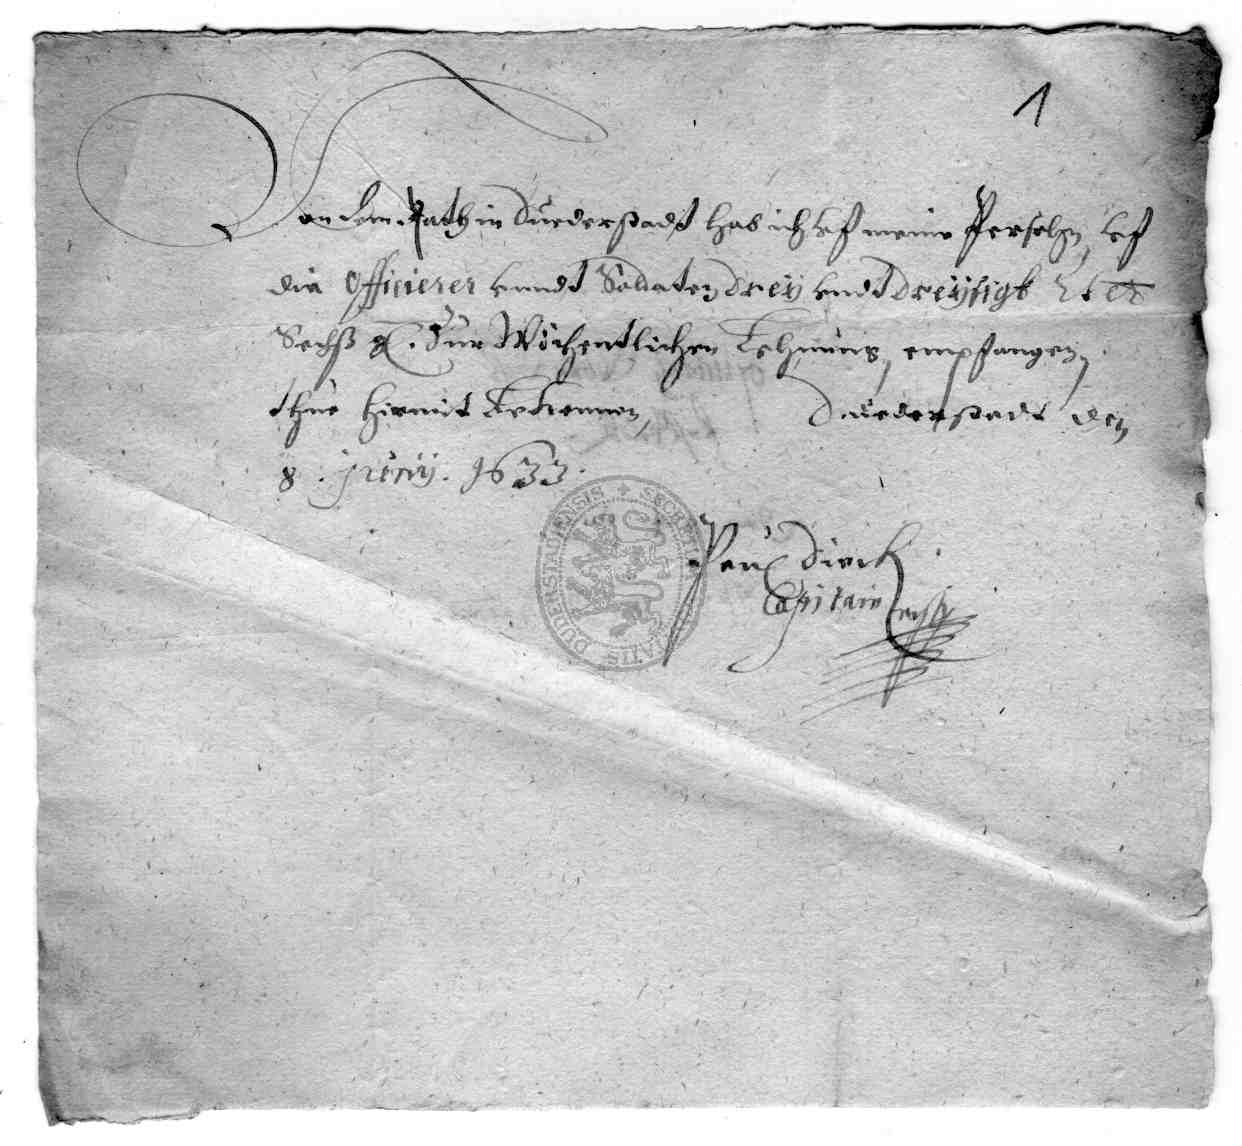 1
Von dem Rath in Duederstadt hab ich uf meine Persohn, uf
die Officierer unndt Soldaten drey undt dreyssigk Rthlr
Sechß g. Zur Wöchentlichen Lehnung, empfangen,
thue hiermit bekennen, Duederstadt den
8. Junij. 1633.
Paul Dirck
Capitain
SECRETU DUDERSTADENSIS